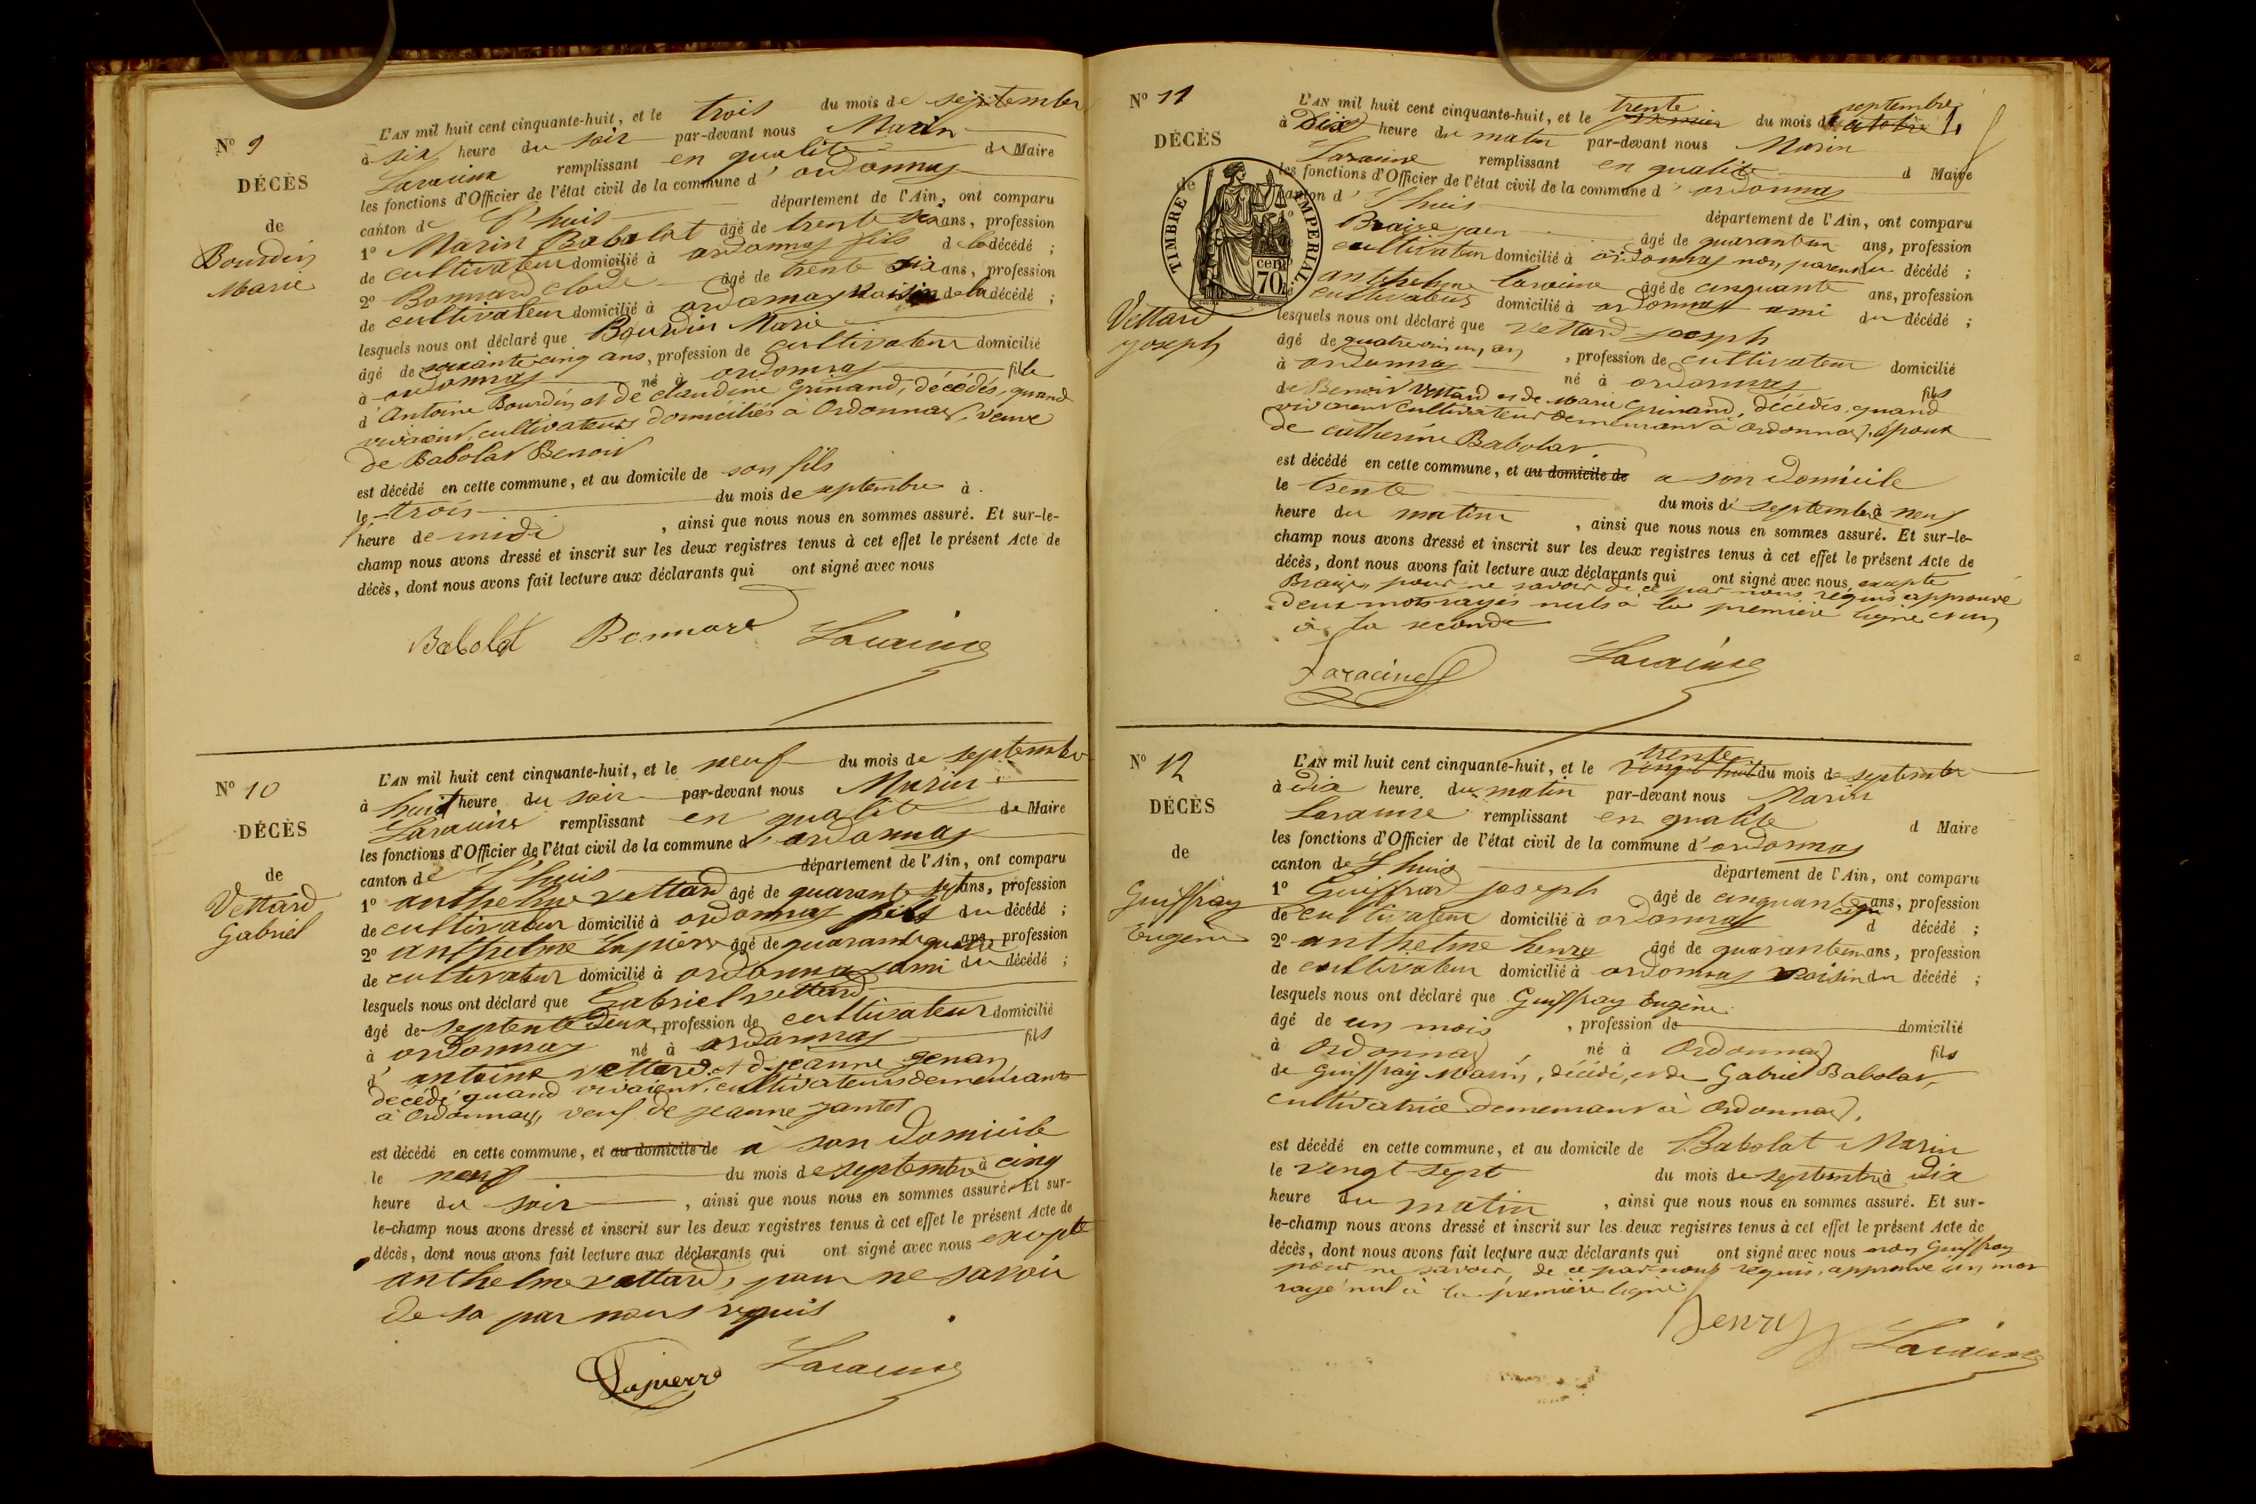 N° 9
DÉCÈS
de
Bourdin
Marie
L'AN mil huit cent cinquante-huit, et le trois du mois de septembre
à six heure du soir par-devant nous Marin
Laracine remplissant en qualité de Maire
les fonctions d'Officier de l'état civil de la commune d'ordonnas
canton de L'huis département de l'Ain, ont comparu
1° Marin Babolat âgé de trente ans, profession
de cultivateur domicilié à ordonnas fils de la décédé ;
2° Bonnard clode âgé de trente six ans, profession
de cultivateur domicilié à ordonnas voisin de la décédé ;
lesquels nous ont déclaré que Bourdin Marie
âgé de soixante cinq ans, profession de cultivateur domicilié
à ordonnas né à ordonnas fille
d'Antoine Bourdin et de claudine Grinand, décédés, quand
vivaient, cultivateurs domiciliés à Ordonnas, veuve
de Babolat Benoit
est décédé en cette commune, et au domicile de son fils
le trois du mois de septembre à
l'heure de midi, ainsi que nous nous en sommes assuré. Et sur-le-
champ nous avons dressé et inscrit sur les deux registres tenus à cet effet le présent Acte de
décès, dont nous avons fait lecture aux déclarants qui ont signé avec nous
Babolat Bonnard Laracine
N° 10
DÉCÈS
de
Vettard
Gabriel
L'AN mil huit cent cinquante-huit, et le neuf du mois de septembre
à huit heure du soir par-devant nous Marin
Laracine remplissant en qualité de Maire
les fonctions d'Officier de l'état civil de la commune d'ordonnas
canton de L'huis département de l'Ain, ont comparu
1° anthelme vettard âgé de quarante sept ans, profession
de cultivateur domicilié à ordonnas fils du décédé ;
2° anthelme Lapierre âgé de quarante quatre ans, profession
de cultivateur domicilié à ordonnas ami du décédé ;
lesquels nous ont déclaré que Gabriel vettard
âgé de septente deux, profession de cultivateur domicilié
à ordonnas né à ordonnas fils
d'antoine vettard et de jeanne genan
décédé quand vivaient, cultivateurs demeurants
à Ordonnas, veuf de jeanne jantet
est décédé en cette commune, et au domicile de a son domicile
le neuf du mois de septembre à cinq
heure du soir, ainsi que nous nous en sommes assuré. Et sur-
le-champ nous avons dressé et inscrit sur les deux registres tenus à cet effet le présent Acte de
décès, dont nous avons fait lecture aux déclarants qui ont signé avec nous excepté
anthelme vettard, pour ne savoir
de sa par nous requis
Lapierre Laracine
N° 11
DÉCÈS
de
TIMBRE IMPERIAL.
70 cent
Vettard
joseph
L'AN mil huit cent cinquante-huit, et le trente premier du mois de septembre octobre
à Dix heure du matin par-devant nous Marin
Laracine remplissant en qualité d Maire
les fonctions d'Officier de l'état civil de la commune d'ordonnas
canton d'Lhuis département de l'Ain, ont comparu
Braize jean âgé de quarante un ans, profession
cultivateur domicilié à ordonnas non parent du décédé ;
anthelme laracine âgé de cinquante ans, profession
cultivateur domicilié à ordonnas ami du décédé ;
lesquels nous ont déclaré que vettard joseph
âgé de quatre vin un an, profession de cultivateur domicilié
à ordonnas né à ordonnas fils
de Benoit Vettard et de Marie Grinand, décédés, quand
vivaient cultivateurs demeurant à Ordonnas, époux
de catherine Babolat.
est décédé en cette commune, et au domicile de a son domicile
le trente du mois de septembre à neuf
heure du matin, ainsi que nous nous en sommes assuré. Et sur-le-
champ nous avons dressé et inscrit sur les deux registres tenus à cet effet le présent Acte de
décès, dont nous avons fait lecture aux déclarants qui ont signé avec nous, excepté
Braize, pour ne savoir de ce par nous requis approuvé
deux mots rayés nuls à la première ligne et un
à la seconde
Laracine Laracine
N° 12
DÉCÈS
de
Guiffray
Eugène
L'AN mil huit cent cinquante-huit, et le trente vingt huit du mois de septembre
à Dix heure du matin par-devant nous Marin
Laracine remplissant en qualité d Maire
les fonctions d'Officier de l'état civil de la commune d'ordonnas
canton de Lhuis département de l'Ain, ont comparu
1° Guiffray joseph âgé de cinquante cinq ans, profession
de cultivateur domicilié à ordonnas d décédé ;
2° anthelme henry âgé de quarante un ans, profession
de cultivateur domicilié à ordonnas voisin du décédé ;
lesquels nous ont déclaré que Guiffray Eugène
âgé de un mois, profession de domicilié
à Ordonnas, né à Ordonnas fils
de Guiffray Marin, décédé, et de Gabriel Babolat,
cultivatrice demeurant à Ordonnas.
est décédé en cette commune, et au domicile de Babolat Marin
le vingt sept du mois de septembre à dix
heure du matin, ainsi que nous nous en sommes assuré. Et sur-
le-champ nous avons dressé et inscrit sur les deux registres tenus à cet effet le présent Acte de
décès, dont nous avons fait lecture aux déclarants qui ont signé avec nous non Guiffray
pour ne savoir, de ce par nous requis, approuvé un mot
rayé nul à la première ligne
henry Laracine